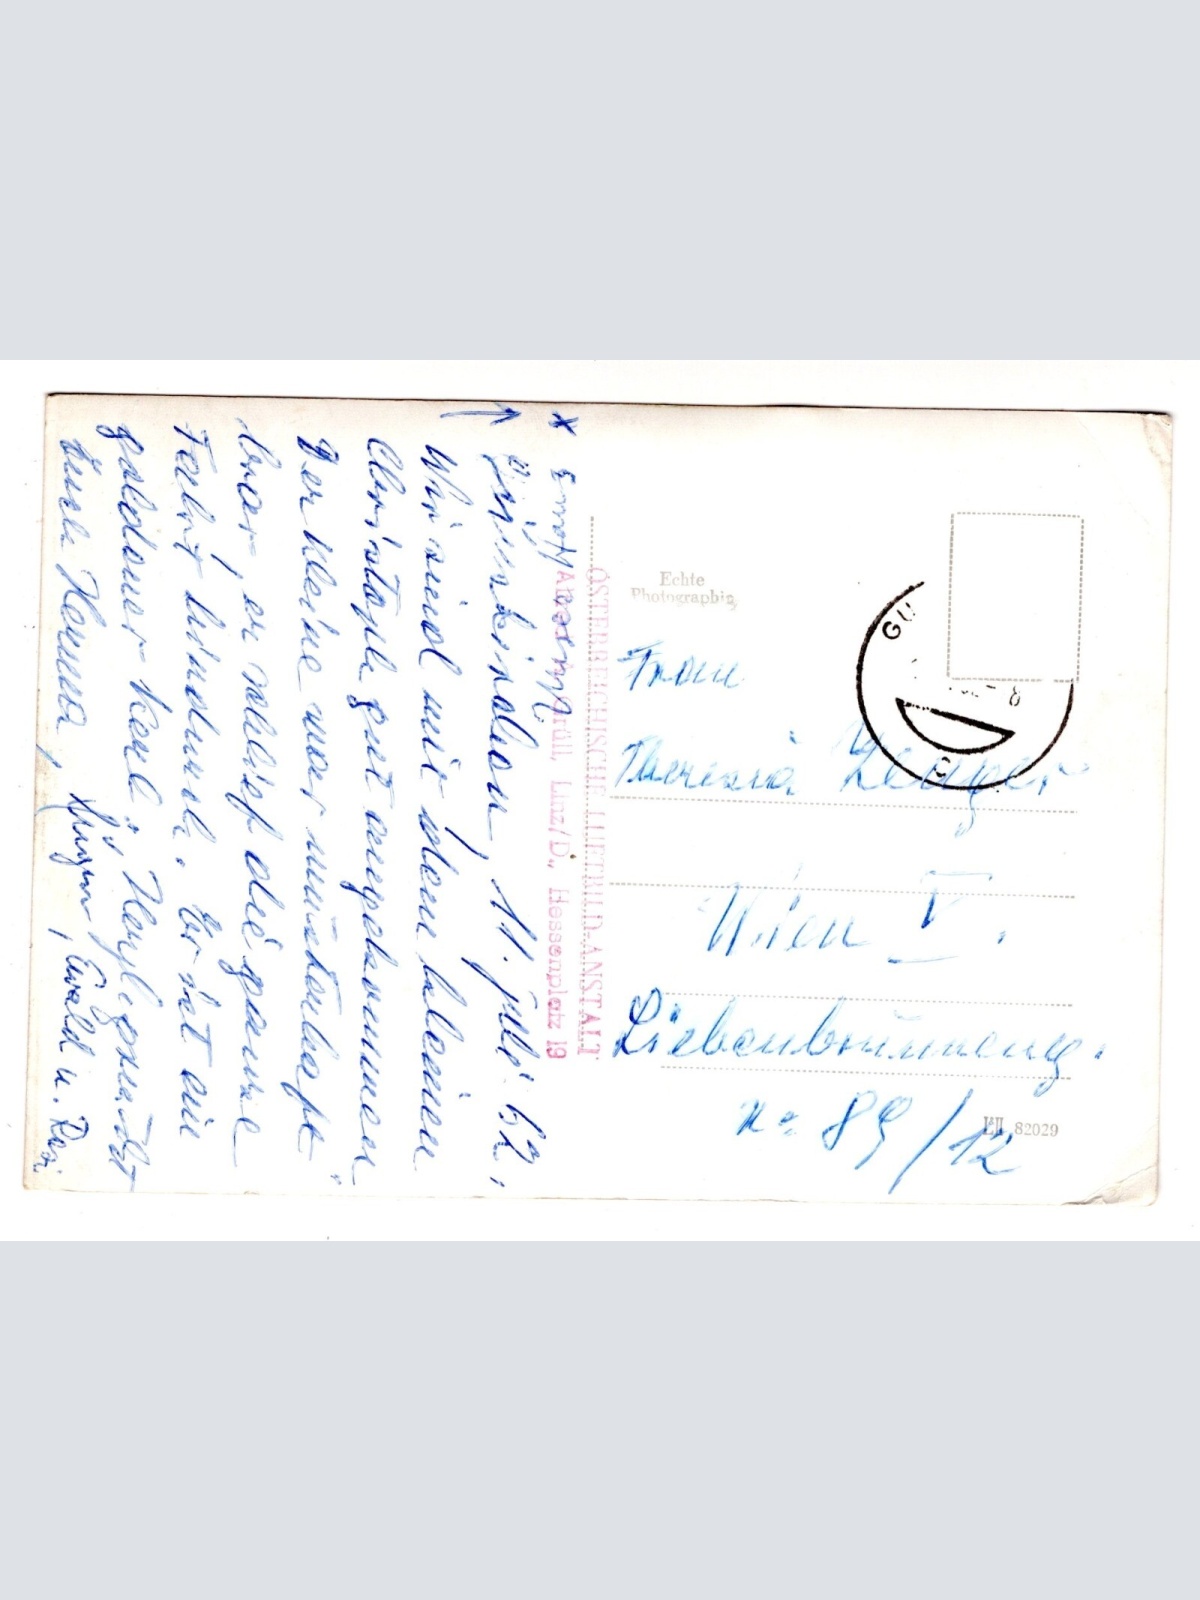 * Ernst
Günskirchen, 11. Juli 62.
Wir sind mit dem kleinen
Christoph gut angekommen
Der kleine war wunderbar
brav, er schlief die ganze
Fahrt hindurch. Er ist ein
goldener Kerl! Herzl. grüßt
Euch Hanna,
Jürgen, Ewald u. Resi.
ÖSTERREICHISCHE LUFTBILD-ANSTALT
Linz/D., Hessenplatz 19
Echte
Photographie
GU
8
Frau
Theresia Zenger
Wien V.
Liebenbrunneng.
No 89/12
82029